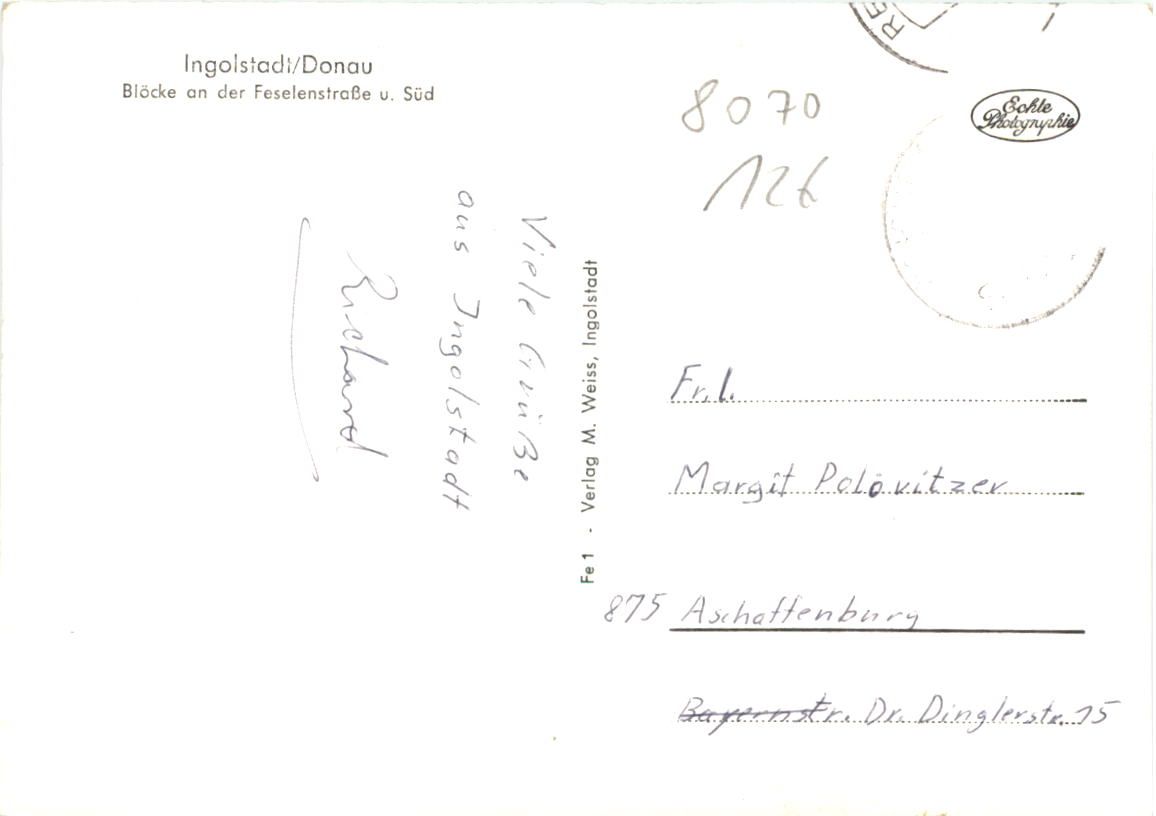 Ingolstadt/Donau
Blöcke an der Feselenstraße u. Süd
Viele Grüße
aus Ingolstadt
Richard
Fe 1 - Verlag M. Weiss, Ingolstadt
8070
126
RE
Echte
Photographie
Frl.
Margit Polövitzer
875 Aschaffenburg
Bayernstr. Dr. Dinglerstr. 15